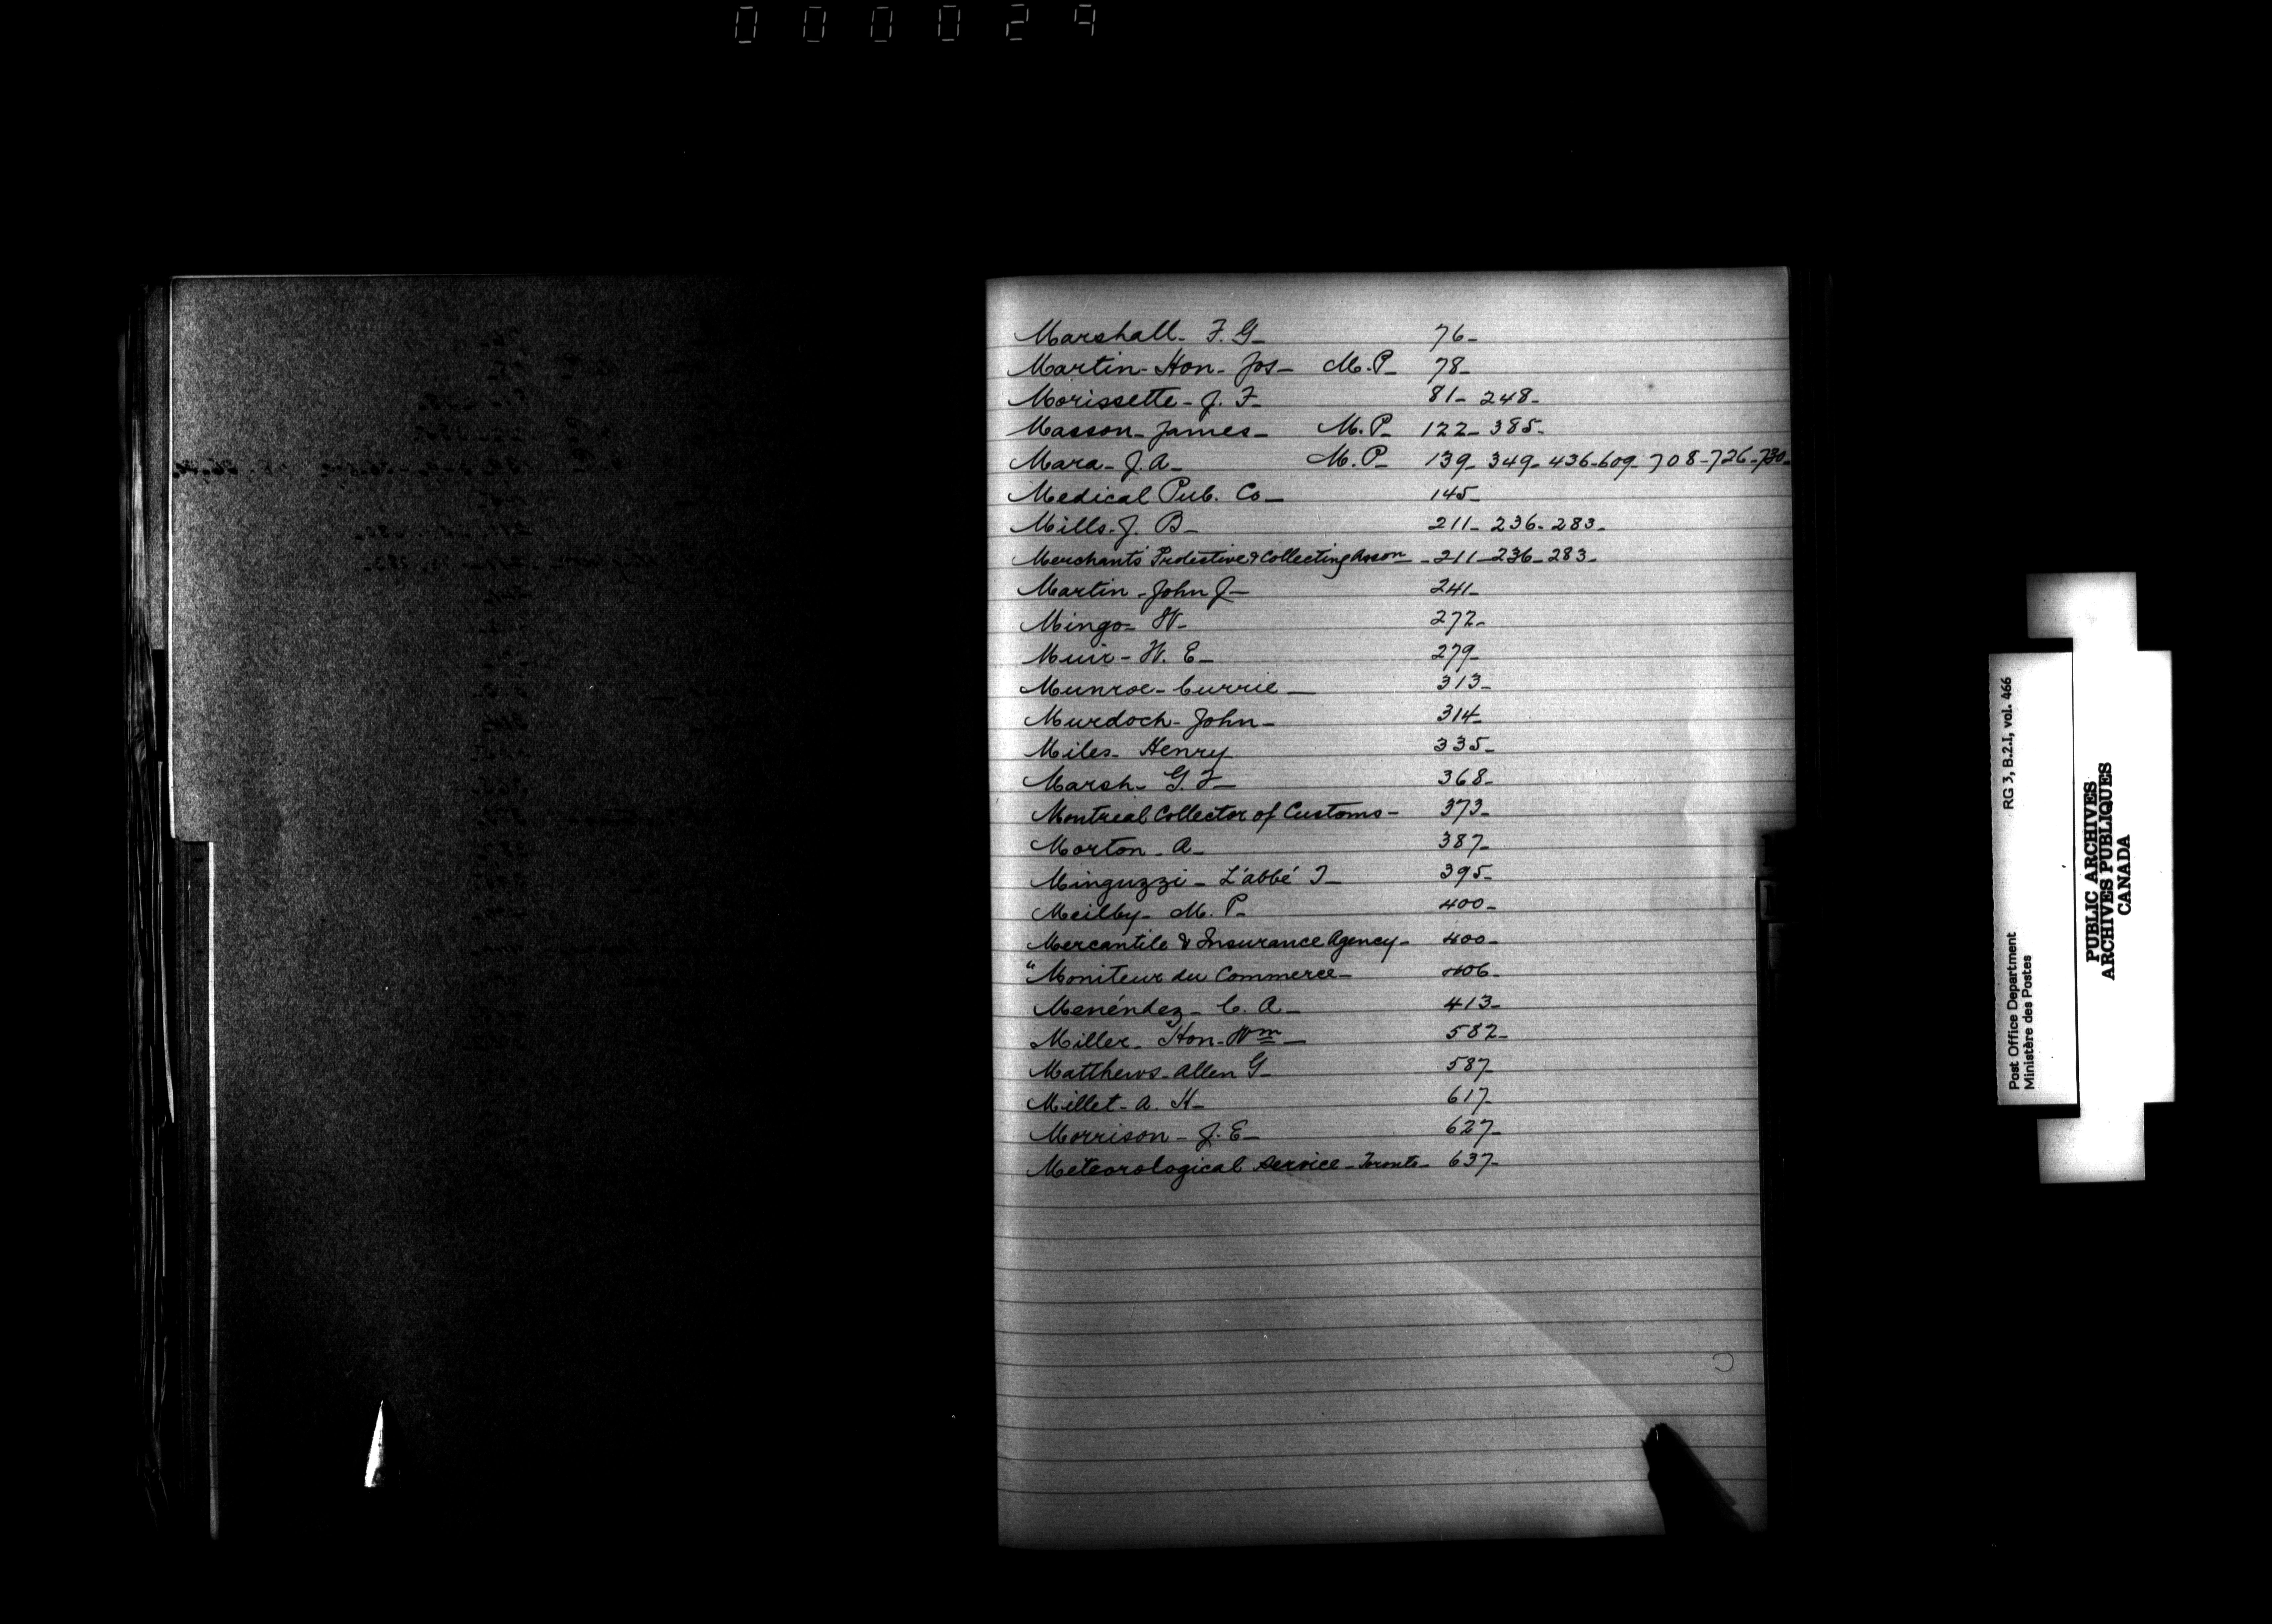 000029
Marshall- F. G- 76-
Martin- Hon- Jos- M.P- 78-
Morissette- J. F- 81- 248-
Masson- James- M.P- 122- 385-
Mara- J. A- M.P- 139- 349- 436- 609- 708- 726- 730-
Medical Pub. Co- 145-
Mills- J. B- 211- 236- 283-
Merchants' Protective & Collecting Asson- 211- 236- 283-
Martin- John J- 241-
Mingo- W- 272-
Muir- W. E- 279-
Munroe- Currie- 313-
Murdoch- John- 314-
Miles- Henry 335-
Marsh- G. F- 368-
Montreal Collector of Customs- 373-
Morton- A- 387-
Minguzzi- L'abbé I- 395-
Meilby- M. P- 400-
Mercantile & Insurance Agency- 400-
"Moniteur du Commerce- 406-
Menéndez- C. A- 413-
Miller- Hon- Wm- 582-
Matthews- Allen G- 587-
Millet- A. H- 617-
Morrison- J. E- 627-
Meteorological Service- Toronto- 637-
Post Office Department RG 3, B.2.I, vol. 466
Ministère des Postes
PUBLIC ARCHIVES
ARCHIVES PUBLIQUES
CANADA